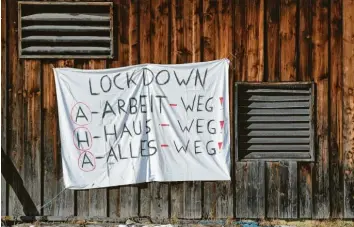 LOCKDOWN
A-ARBEIT-WEG!
H-HAUS-WEG!
A-ALLES-WEG!